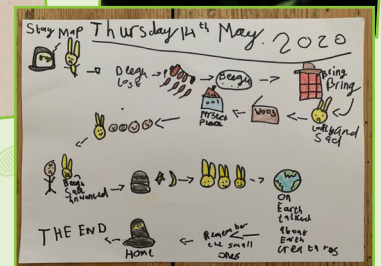 Stay Map Thursday 14th May. 2020
Beegu
Lost
Beegu
Bring
Bring
Woos
Perfect
Place
and
Sad
Beegu
Said
Unwanted
On
Earth
talked
About
Earth
Creatures
Remember
the small
ones
Home
THE END